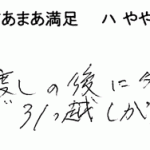 あまあ満足 ハ やや
渡しの後に
引っ越しが